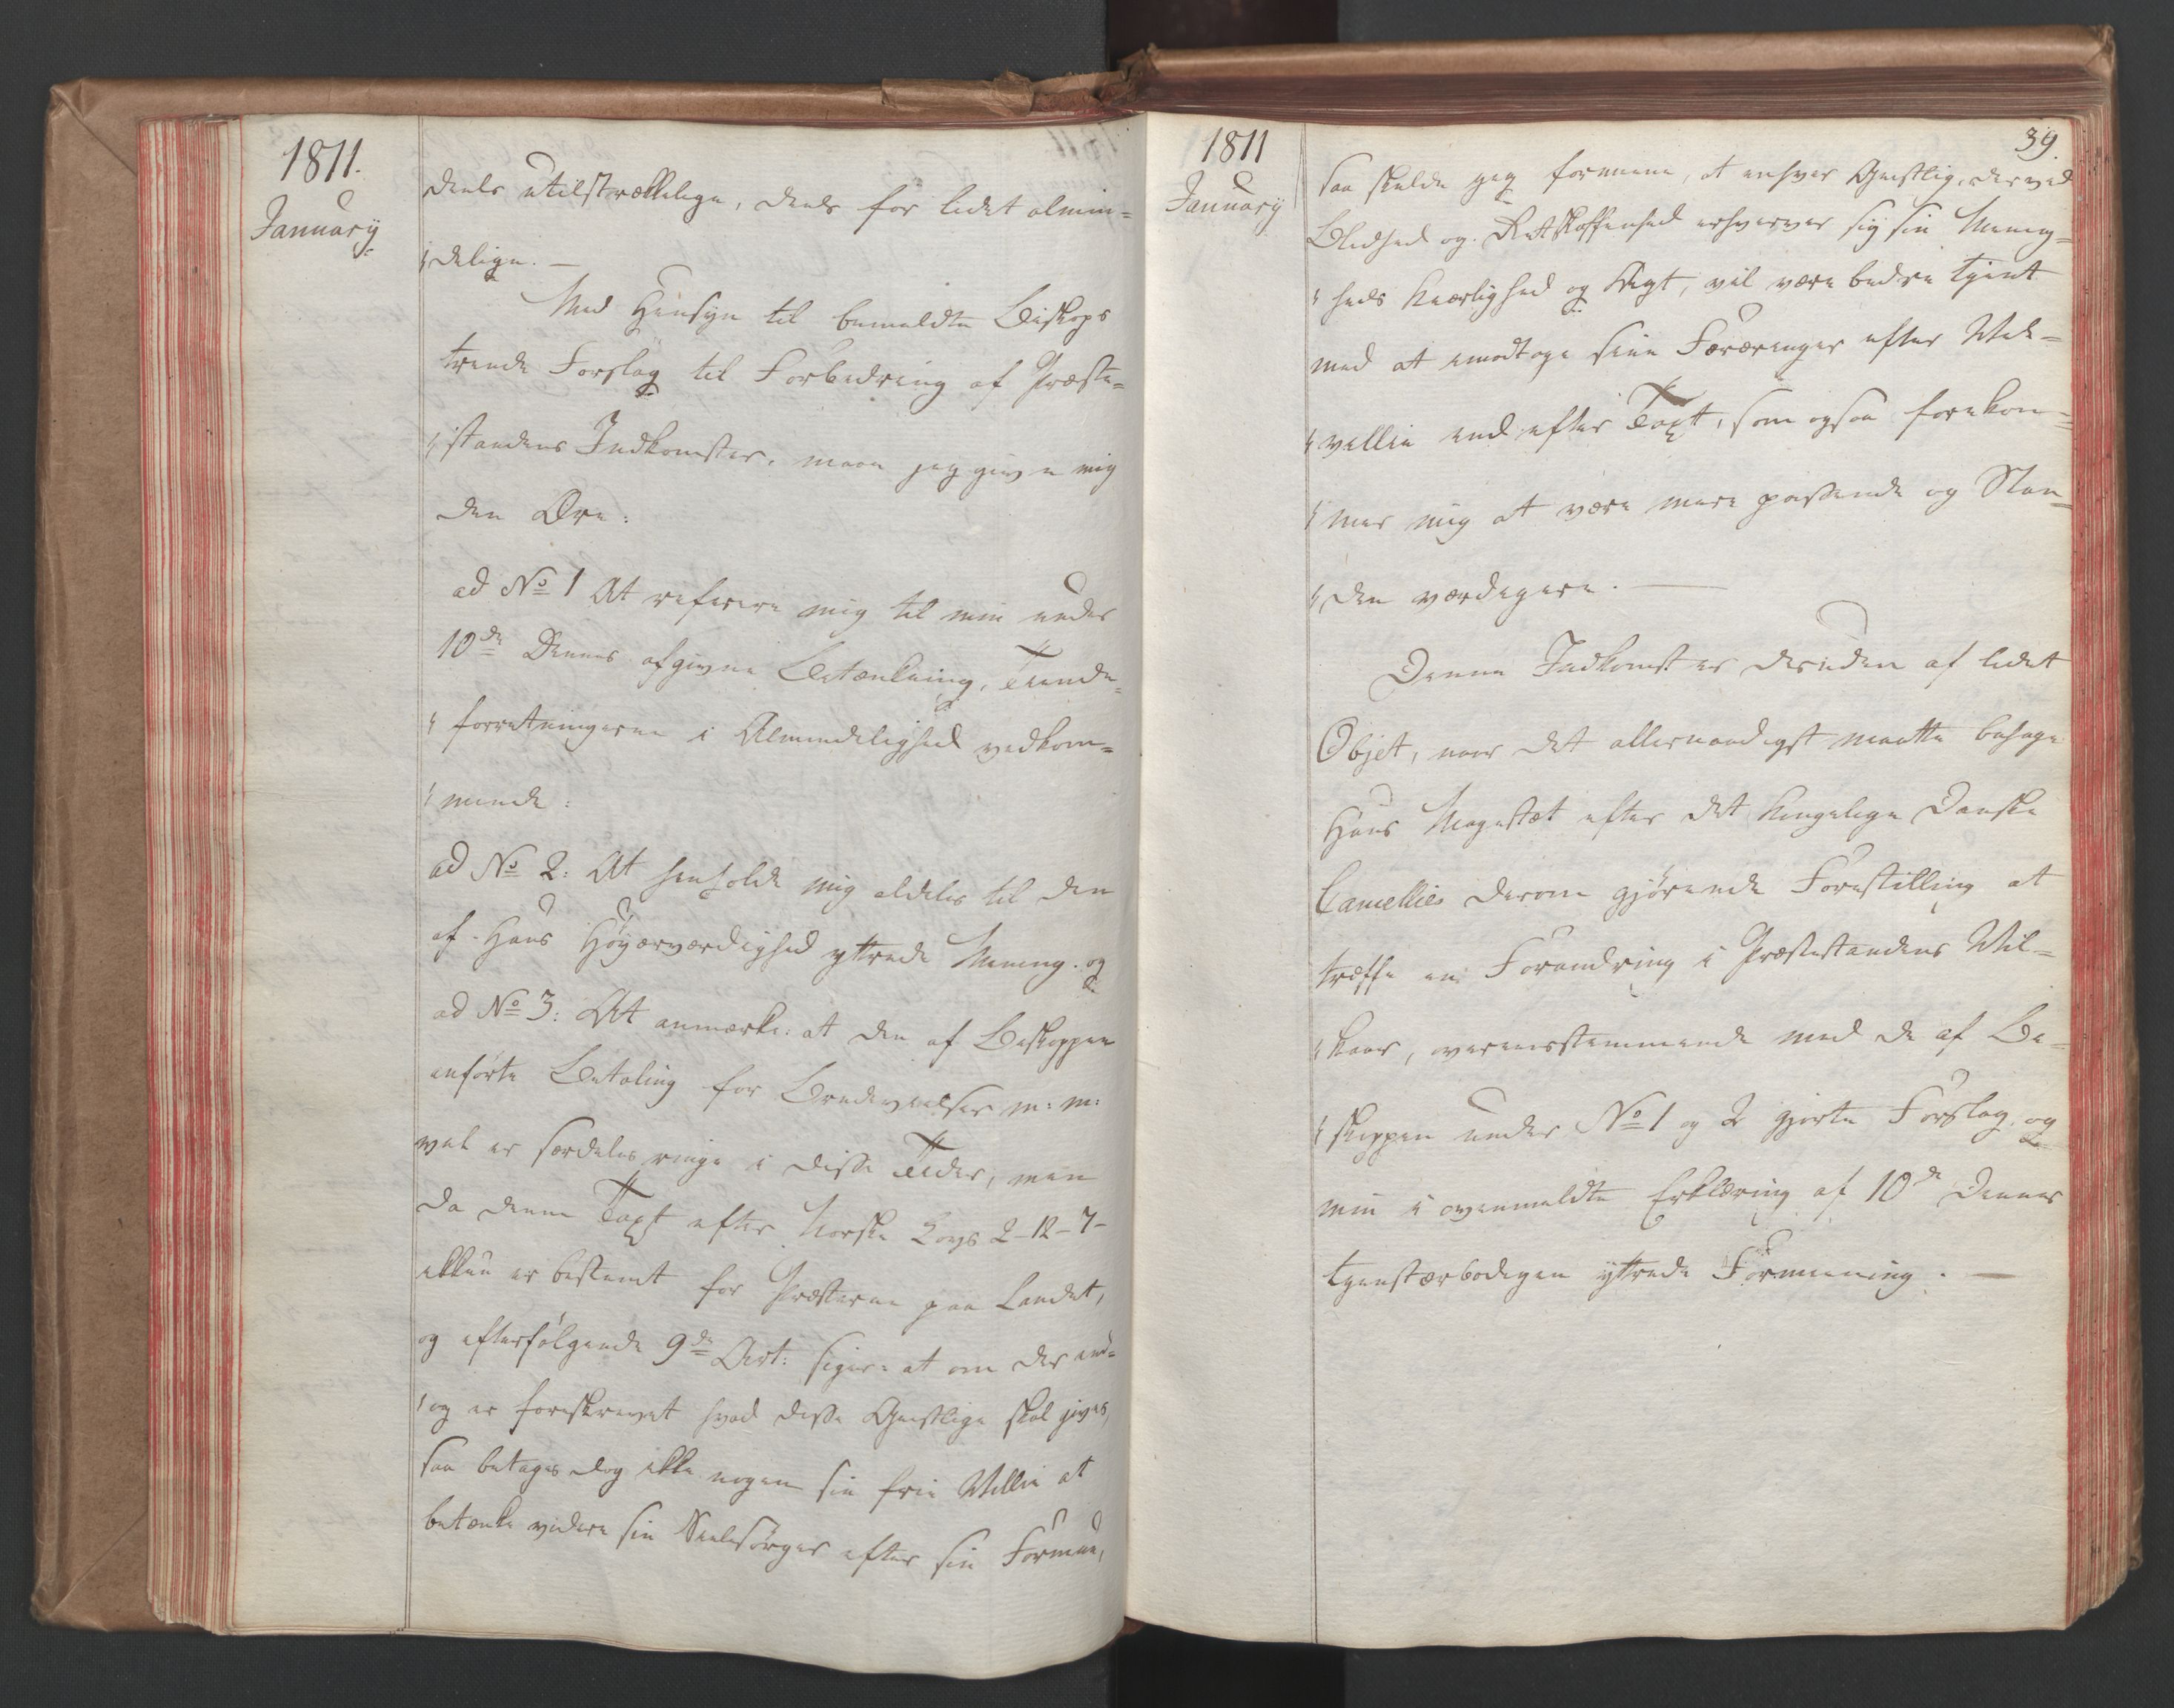 1811.
January
deels utilstrækkelige, deels for lidet almin=
delige. —
Med Hensyn til bemeldte Biskops
trende Forslag til Forbedring af Præste=
standens Indkomster, maae jeg give mig
den Ære:
ad No 1 At referere mig til min under
10de Dennes afgivne Betænkning, Tiende=
forretningerne i Almindelighed vedkom=
mende:
ad No 2: At henholde mig aldeles til den
af Hans Højærværdighed yttrede Mening. og
ad No 3: At anmærke: at den af Biskoppen
anførte Betaling for Brudevielser m: m:
vel er særdeles ringe i disse Tider, men
da denne Taxt efter Norske Lovs 2-12-7-
ikkun er bestemt for Præsterne paa Landet,
og efterfølgende 9de Art: siger: at om der end=
og er foreskrevet hvad disse Geistlige skal gives,
saa betages dog ikke nogen sin frie Villie at
betænke videre sin Sielesørger efter sin Formue,
1811
January
39.
saa skulde jeg formene, at enhver Geistlig, der ved
Blidhed og Retskaffenhed erhverver sig sin Menig=
heds Kærlighed og Agt, vil være bedre tjent
med at imodtage sine Foræringer efter Vel=
villie end efter Taxt, som ogsaa forekom=
mer mig at være mere passende og Stan=
den værdigere. —
Denne Indkomst er desuden af lidet
Objet, naar det allernaadigst maatte behage
Hans Magestæt efter det Kongelige Danske
Cancellies derom gjørende Forestilling at
træffe en Forandring i Præstestandens Vil=
kaar, overeensstemmende med de af Bi=
skoppen under No 1 og 2 gjorte Forslag, og
min i ovenmeldte Erklæring af 10de Dennes
tjenstærbødigen yttrede Formening. —